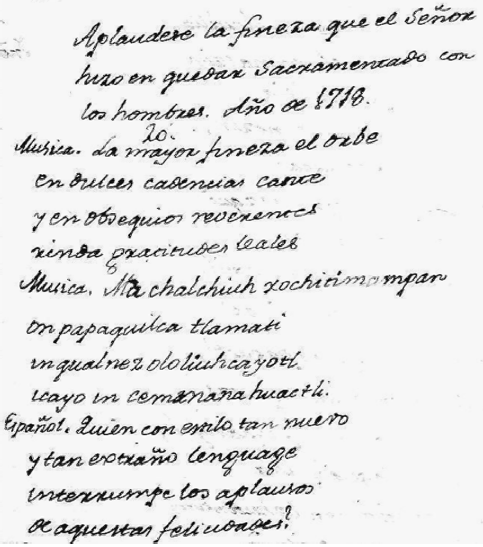 Aplaudese la fineza que el Señor
hizo en quedar Sacramentado con
los hombres. Año de 1718.
20.
Musica. La mayor fineza el orbe
en dulces cadencias cante
y en obsequios reverentes
rinda gratitudes leales
Musica. Ma chalchiuh xochitimampan
on papaquilca tlamati
inqualnez ololiuhcayotl
icayo in cemanahuactli.
Español. Quien con estilo tan nuevo
y tan extraño lenguage
interrumpe los aplausos
de aquestas felicidades?